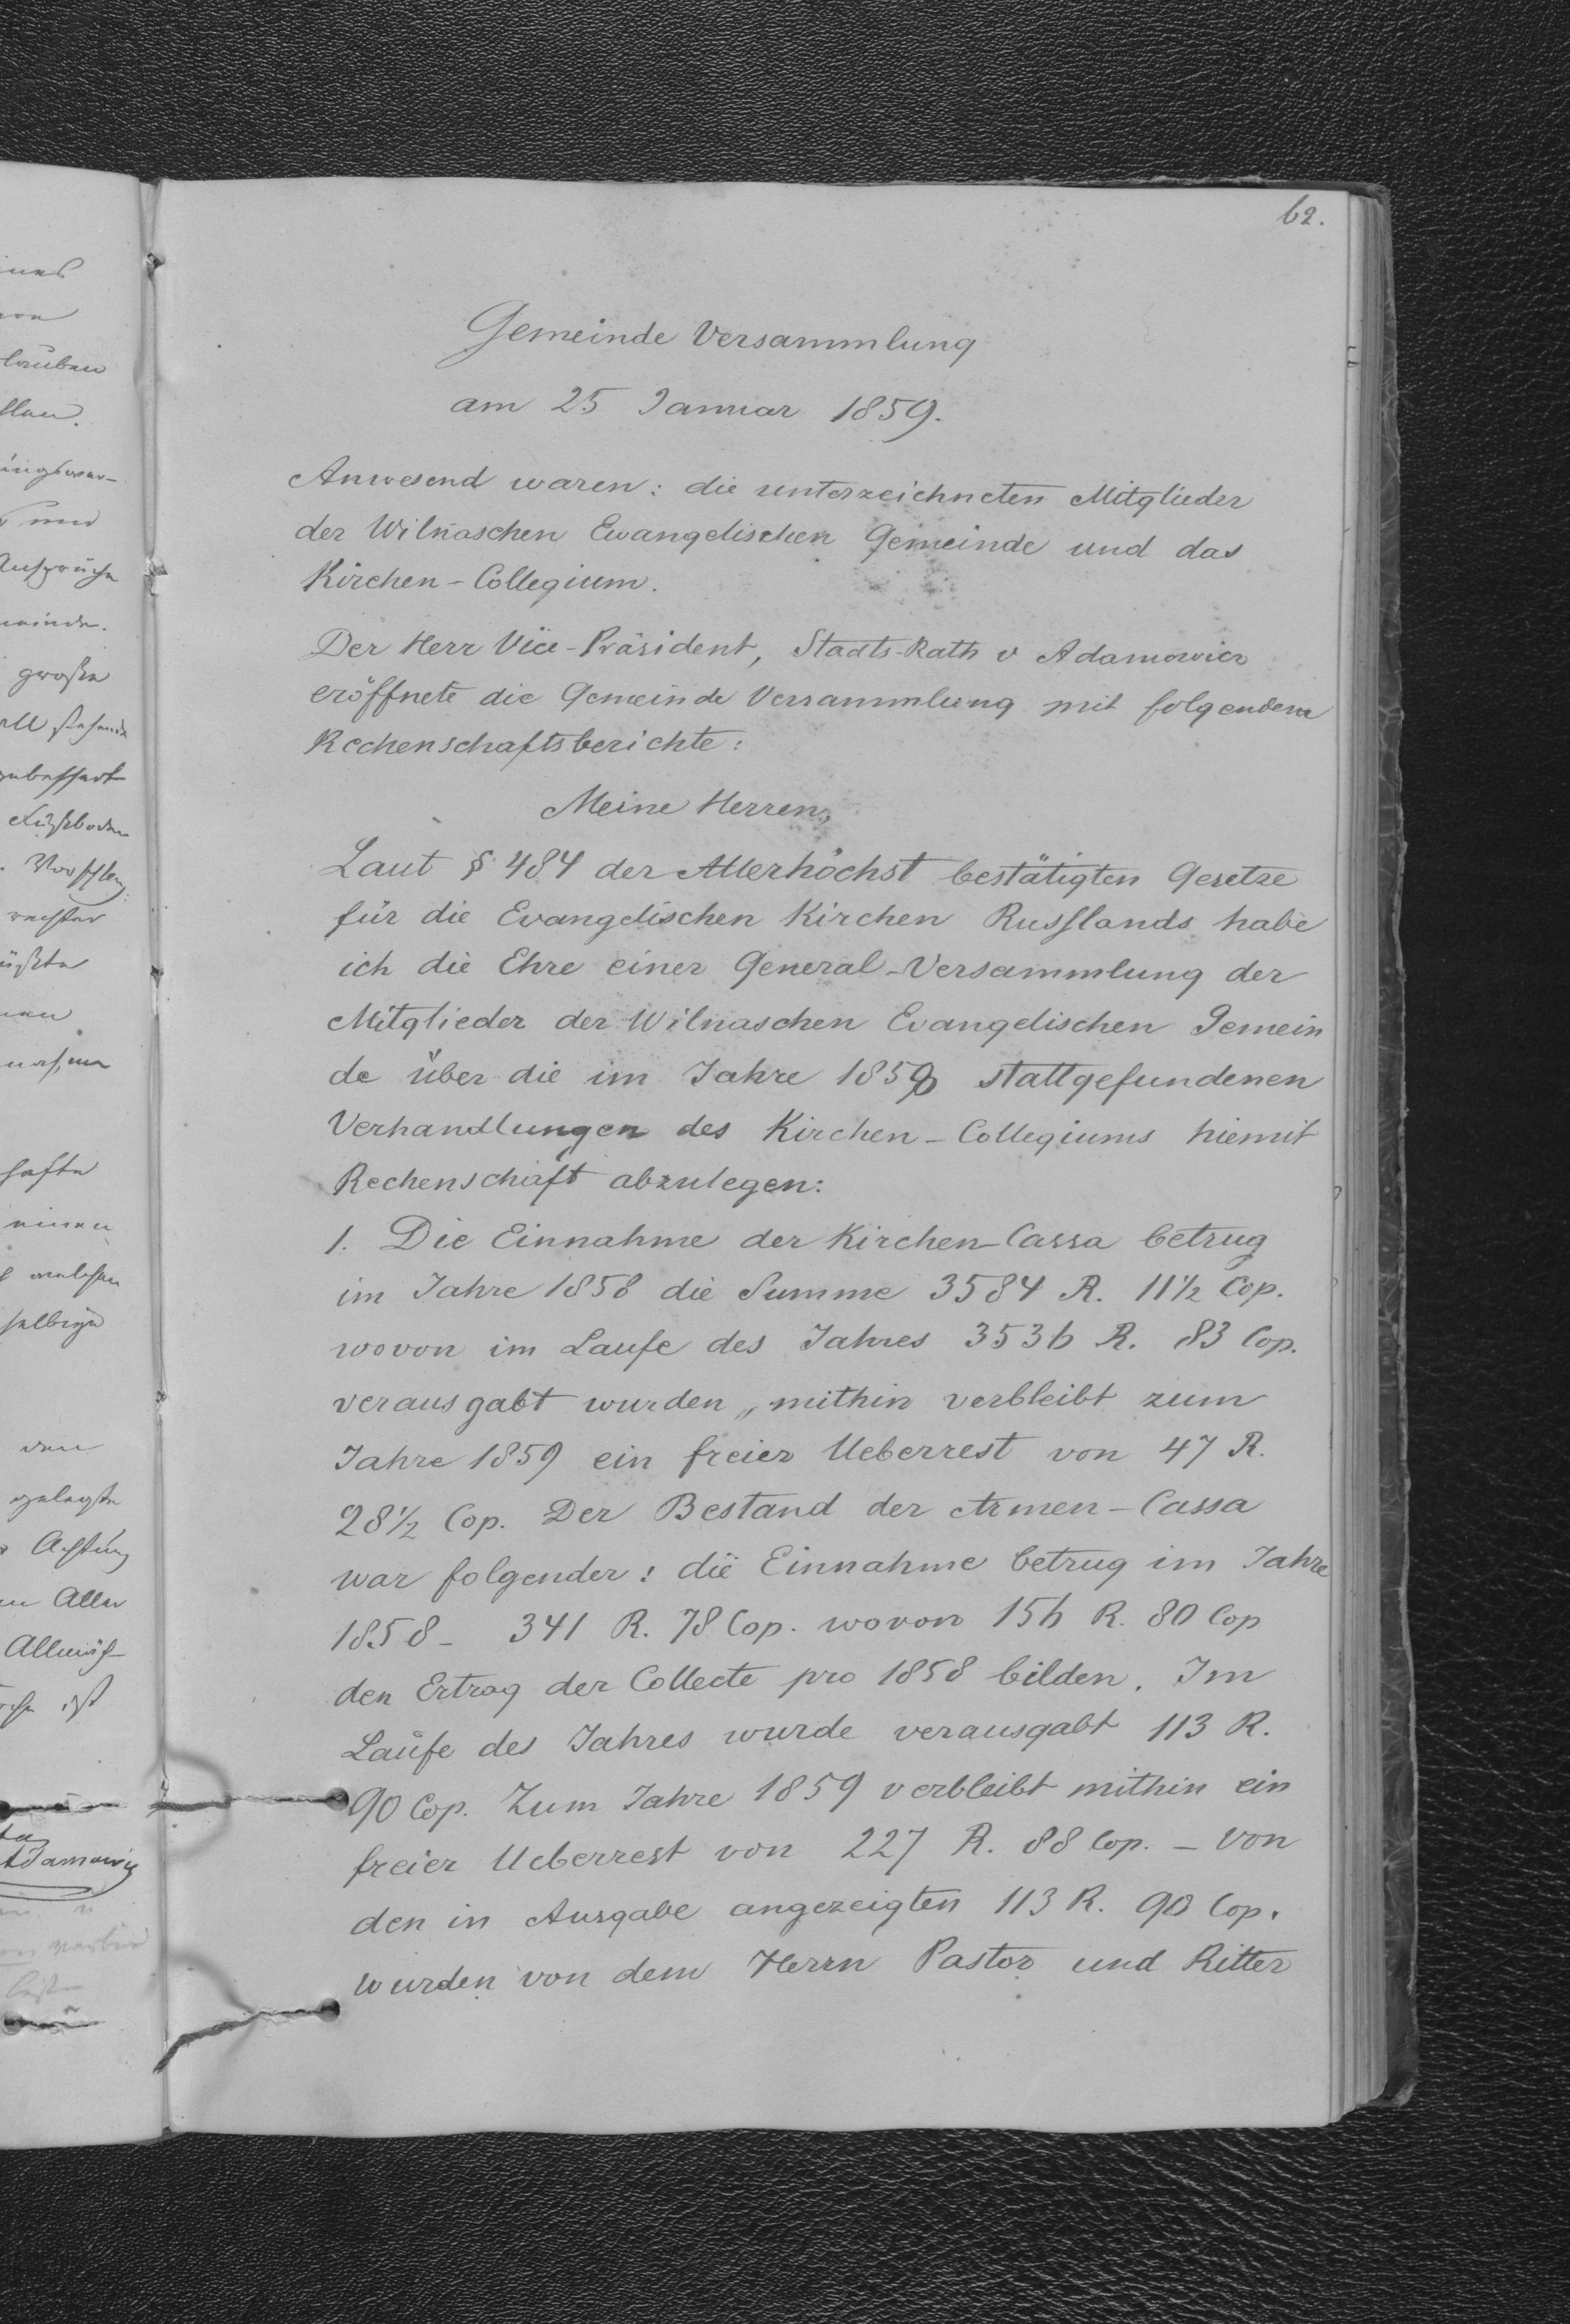 62.
Gemeinde Versammlung
am 25 Januar 1859.
Anwesend waren: die unterzeichneten Mitglieder
der Wilnaschen Evangelischen Gemeinde und das
Kirchen-Collegium.
Der Herr Vice-Präsident, Staats-Rath v Adamowicz
eröffnete die Gemeinde Versammlung mit folgendem
Rechenschaftsberichte:
Meine Herren,
Laut § 484 der Allerhöchst bestätigten Gesetze
für die Evangelischen Kirchen Russlands habe
ich die Ehre einer General-Versammlung der
Mitglieder der Wilnaschen Evangelischen Gemein
de über die im Jahre 1858 stattgefundenen
Verhandlungen des Kirchen-Collegiums hiemit
Rechenschaft abzulegen:
1. Die Einnahme der Kirchen-Cassa betrug
im Jahre 1858 die Summe 3584 R. 11½ Cop.
wovon im Laufe des Jahres 3536 R. 83 Cop.
verausgabt wurden, mithin verbleibt zum
Jahre 1859 ein freier Ueberrest von 47 R.
28½ Cop. Der Bestand der Armen-Cassa
war folgender: die Einnahme betrug im Jahre
1858 - 341 R. 78 Cop. wovon 156 R. 80 Cop
den Ertrag der Collecte pro 1858 bilden. Im
Laufe des Jahres wurde verausgabt 113 R.
90 Cop. Zum Jahre 1859 verbleibt mithin ein
freier Ueberrest von 227 R. 88 Cop. - Von
den in Ausgabe angezeigten 113 R. 90 Cop.
wurden von dem Herrn Pastor und Ritter